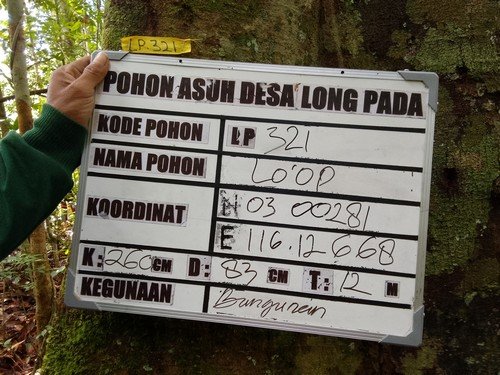 LP.321
POHON ASUH DESA LONG PADA
KODE POHON LP 321
NAMA POHON LO'OP
KOORDINAT N 03 00281
E 116.12668
K: 260 CM D: 83 CM T: 12 M
KEGUNAAN Bangunan